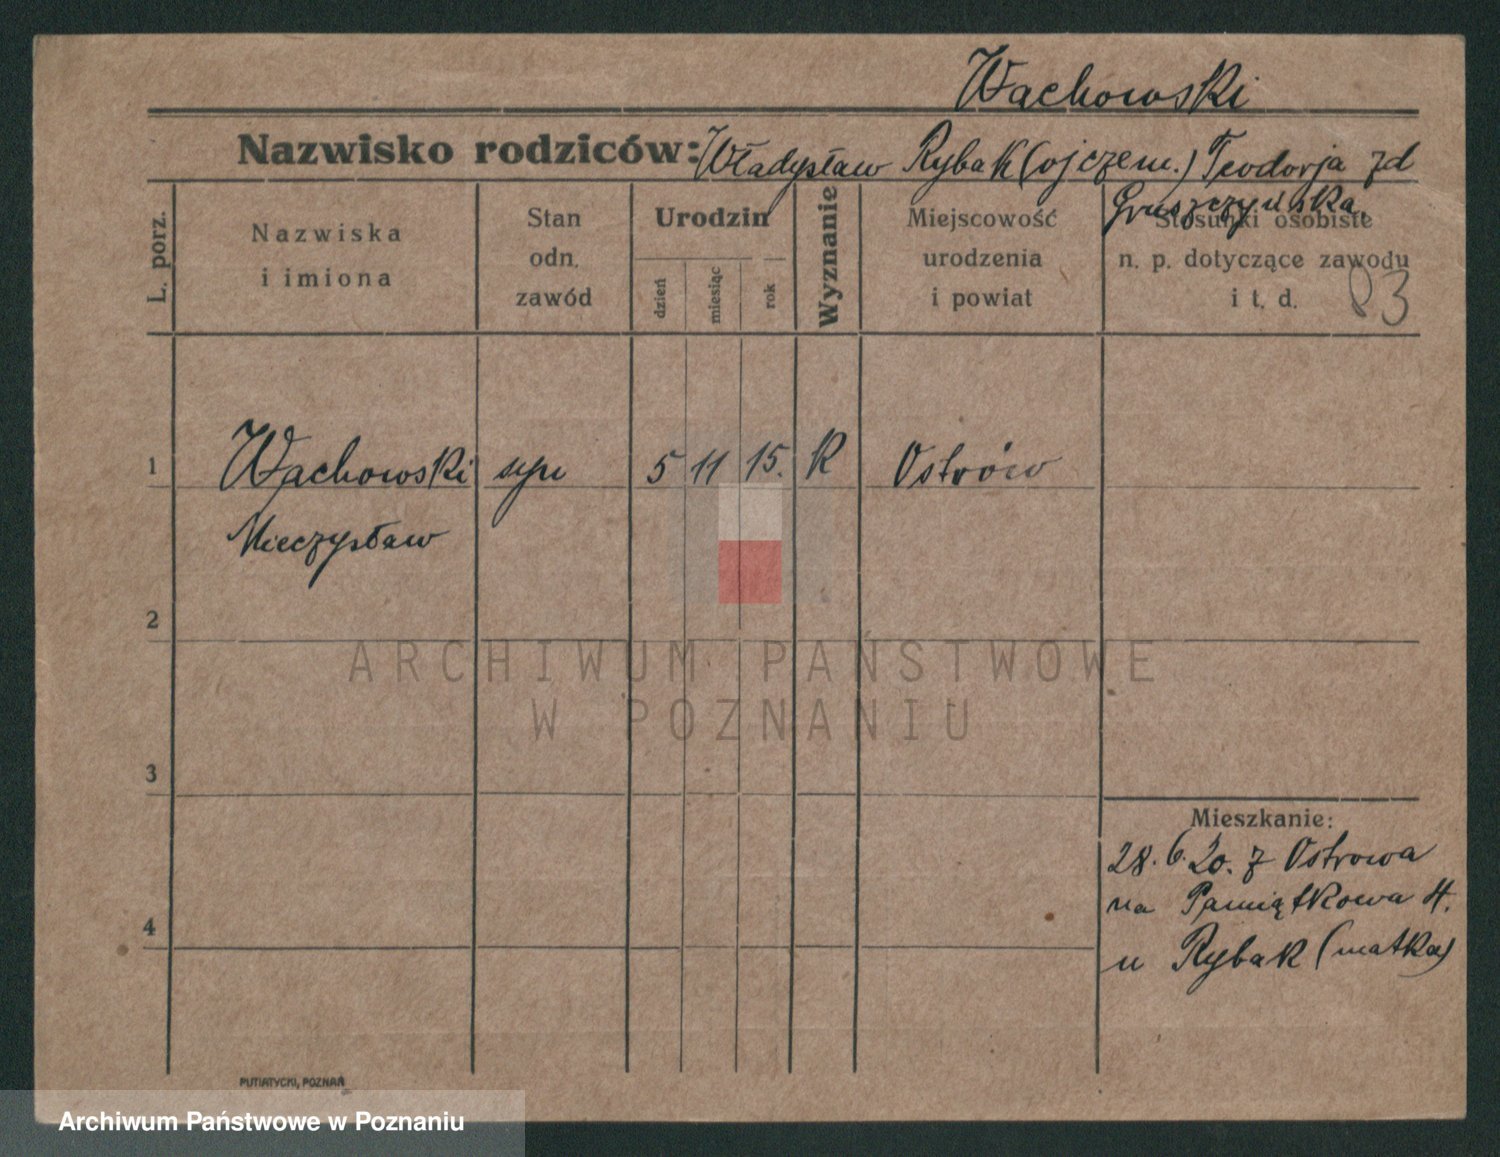 Wachowski
Nazwisko rodziców: Władysław Rybak (ojczem.) Teodorja zd
Gruszczyńska
L. porz.
Nazwiska
i imiona
Stan
odn.
zawód
Urodzin
dzień
miesiąc
rok
Wyznanie
Miejscowość
urodzenia
i powiat
Stosunki osobiste
n. p. dotyczące zawodu
i t. d.
1 Wachowski syn 5 11 15. K Ostrów
Mieczysław
2
ARCHIWUM PAŃSTWOWE
W POZNANIU
3
Mieszkanie:
28.6.20. z Ostrowa
na Pamiątkowa 4.
4
u Rybak (matka)
PUTIATYCKI, POZNAŃ
Archiwum Państwowe w Poznaniu